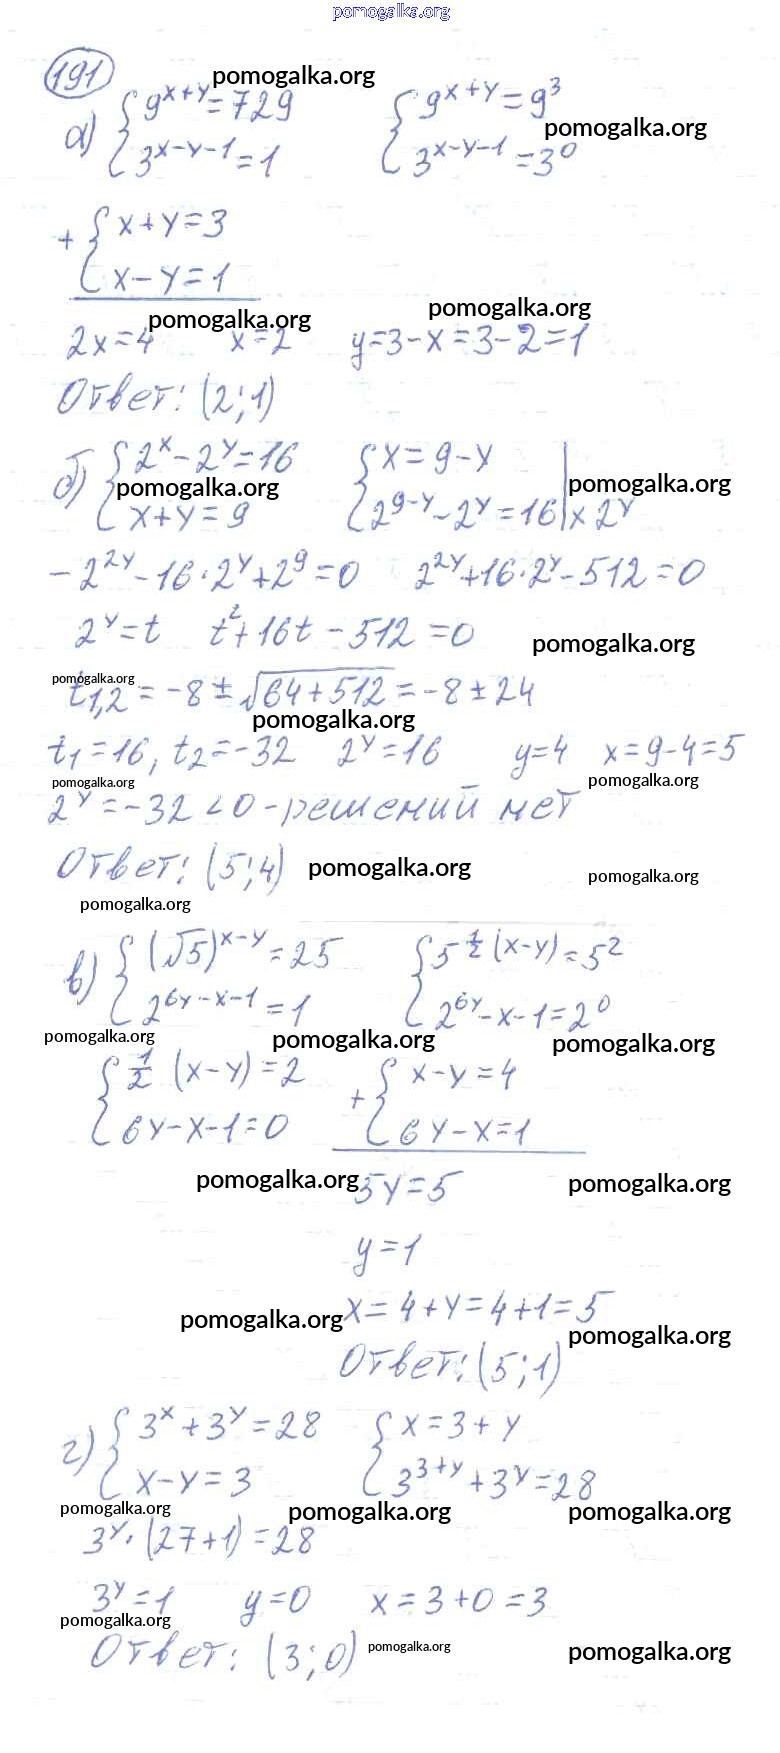 pomogalka.org
191 pomogalka.org
а) { 9^(x+y) = 729 { 9^(x+y) = 9^3
pomogalka.org
3^(x-y-1) = 1 3^(x-y-1) = 3^0
+ { x+y=3
x-y=1
pomogalka.org pomogalka.org
2x=4 x=2 y=3-x=3-2=1
Ответ: (2;1)
б) { 2^x - 2^y = 16 { x = 9-y
pomogalka.org pomogalka.org
x+y=9 2^(9-y) - 2^y = 16 | x 2^y
- 2^(2y) - 16·2^y + 2^9 = 0 2^(2y) + 16·2^y - 512 = 0
2^y = t t^2 + 16t - 512 = 0 pomogalka.org
pomogalka.org
t1,2 = -8 ± √(64+512) = -8 ± 24
pomogalka.org
t1 = 16, t2 = -32 2^y = 16 y=4 x=9-4=5
pomogalka.org pomogalka.org
2^y = -32 < 0 - решений нет
Ответ: (5;4) pomogalka.org pomogalka.org
pomogalka.org
в) { (√5)^(x-y) = 25 { 5^(1/2 (x-y)) = 5^2
2^(6y-x-1) = 1 2^(6y-x-1) = 2^0
pomogalka.org pomogalka.org pomogalka.org
{ 1/2 (x-y) = 2 + { x-y=4
6y-x-1=0 6y-x=1
pomogalka.org 5y=5 pomogalka.org
y=1
x=4+y=4+1=5
pomogalka.org pomogalka.org
Ответ: (5;1)
г) { 3^x + 3^y = 28 { x=3+y
x-y=3 3^(3+y) + 3^y = 28
pomogalka.org pomogalka.org pomogalka.org
3^y·(27+1) = 28
3^y = 1 y=0 x=3+0=3
pomogalka.org
Ответ: (3;0) pomogalka.org pomogalka.org